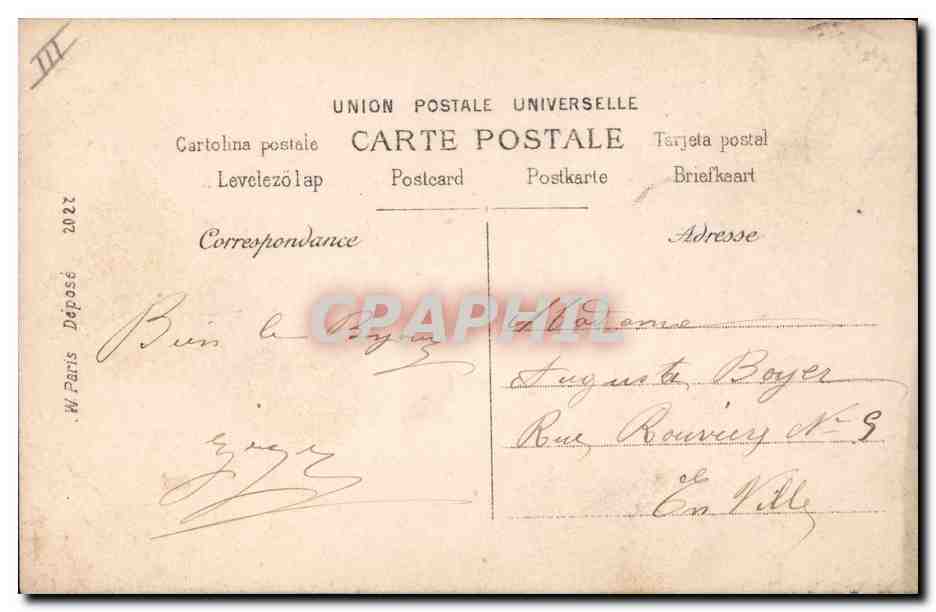 III
UNION POSTALE UNIVERSELLE
Cartolina postale CARTE POSTALE Tarjeta postal
Levelezőlap Postcard Postkarte Briefkaart
Correspondance
Adresse
W. Paris Déposé 2022
CPAPHIL
Bien le
Madame
Auguste Boyer
Rue Rouvière No 9
En Ville